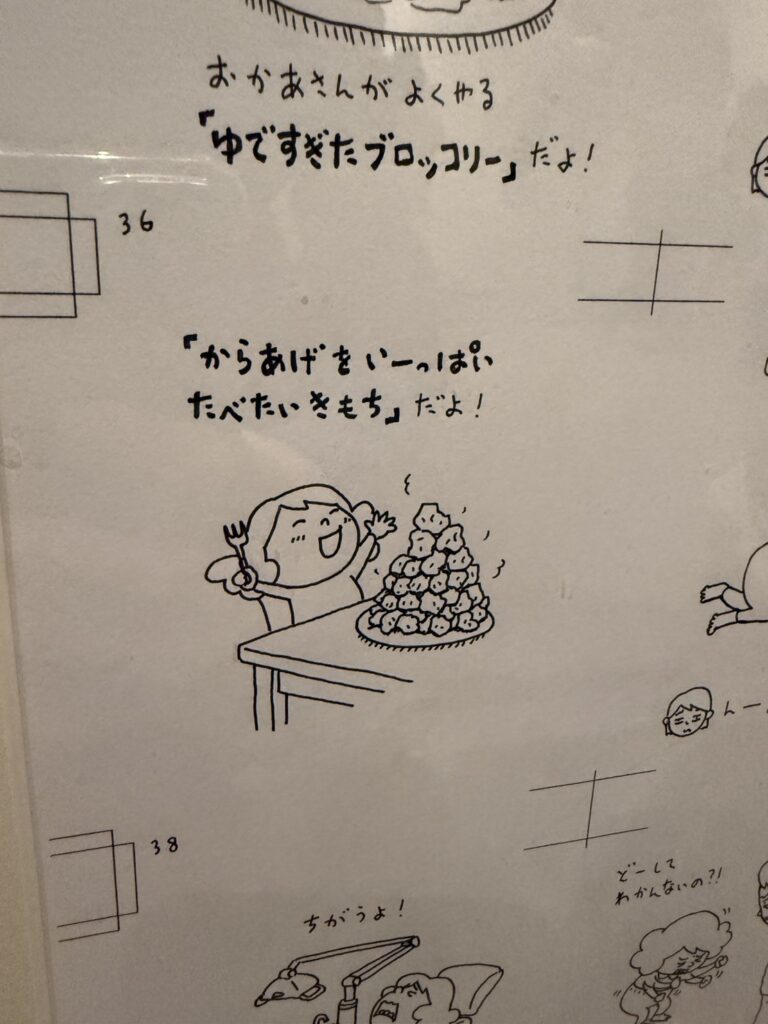 おかあさんがよくやる
「ゆですぎたブロッコリー」だよ!
36
「からあげをいーっぱい
たべたいきもち」だよ!
んー
38
どーして
わかんないの?!
ちがうよ!